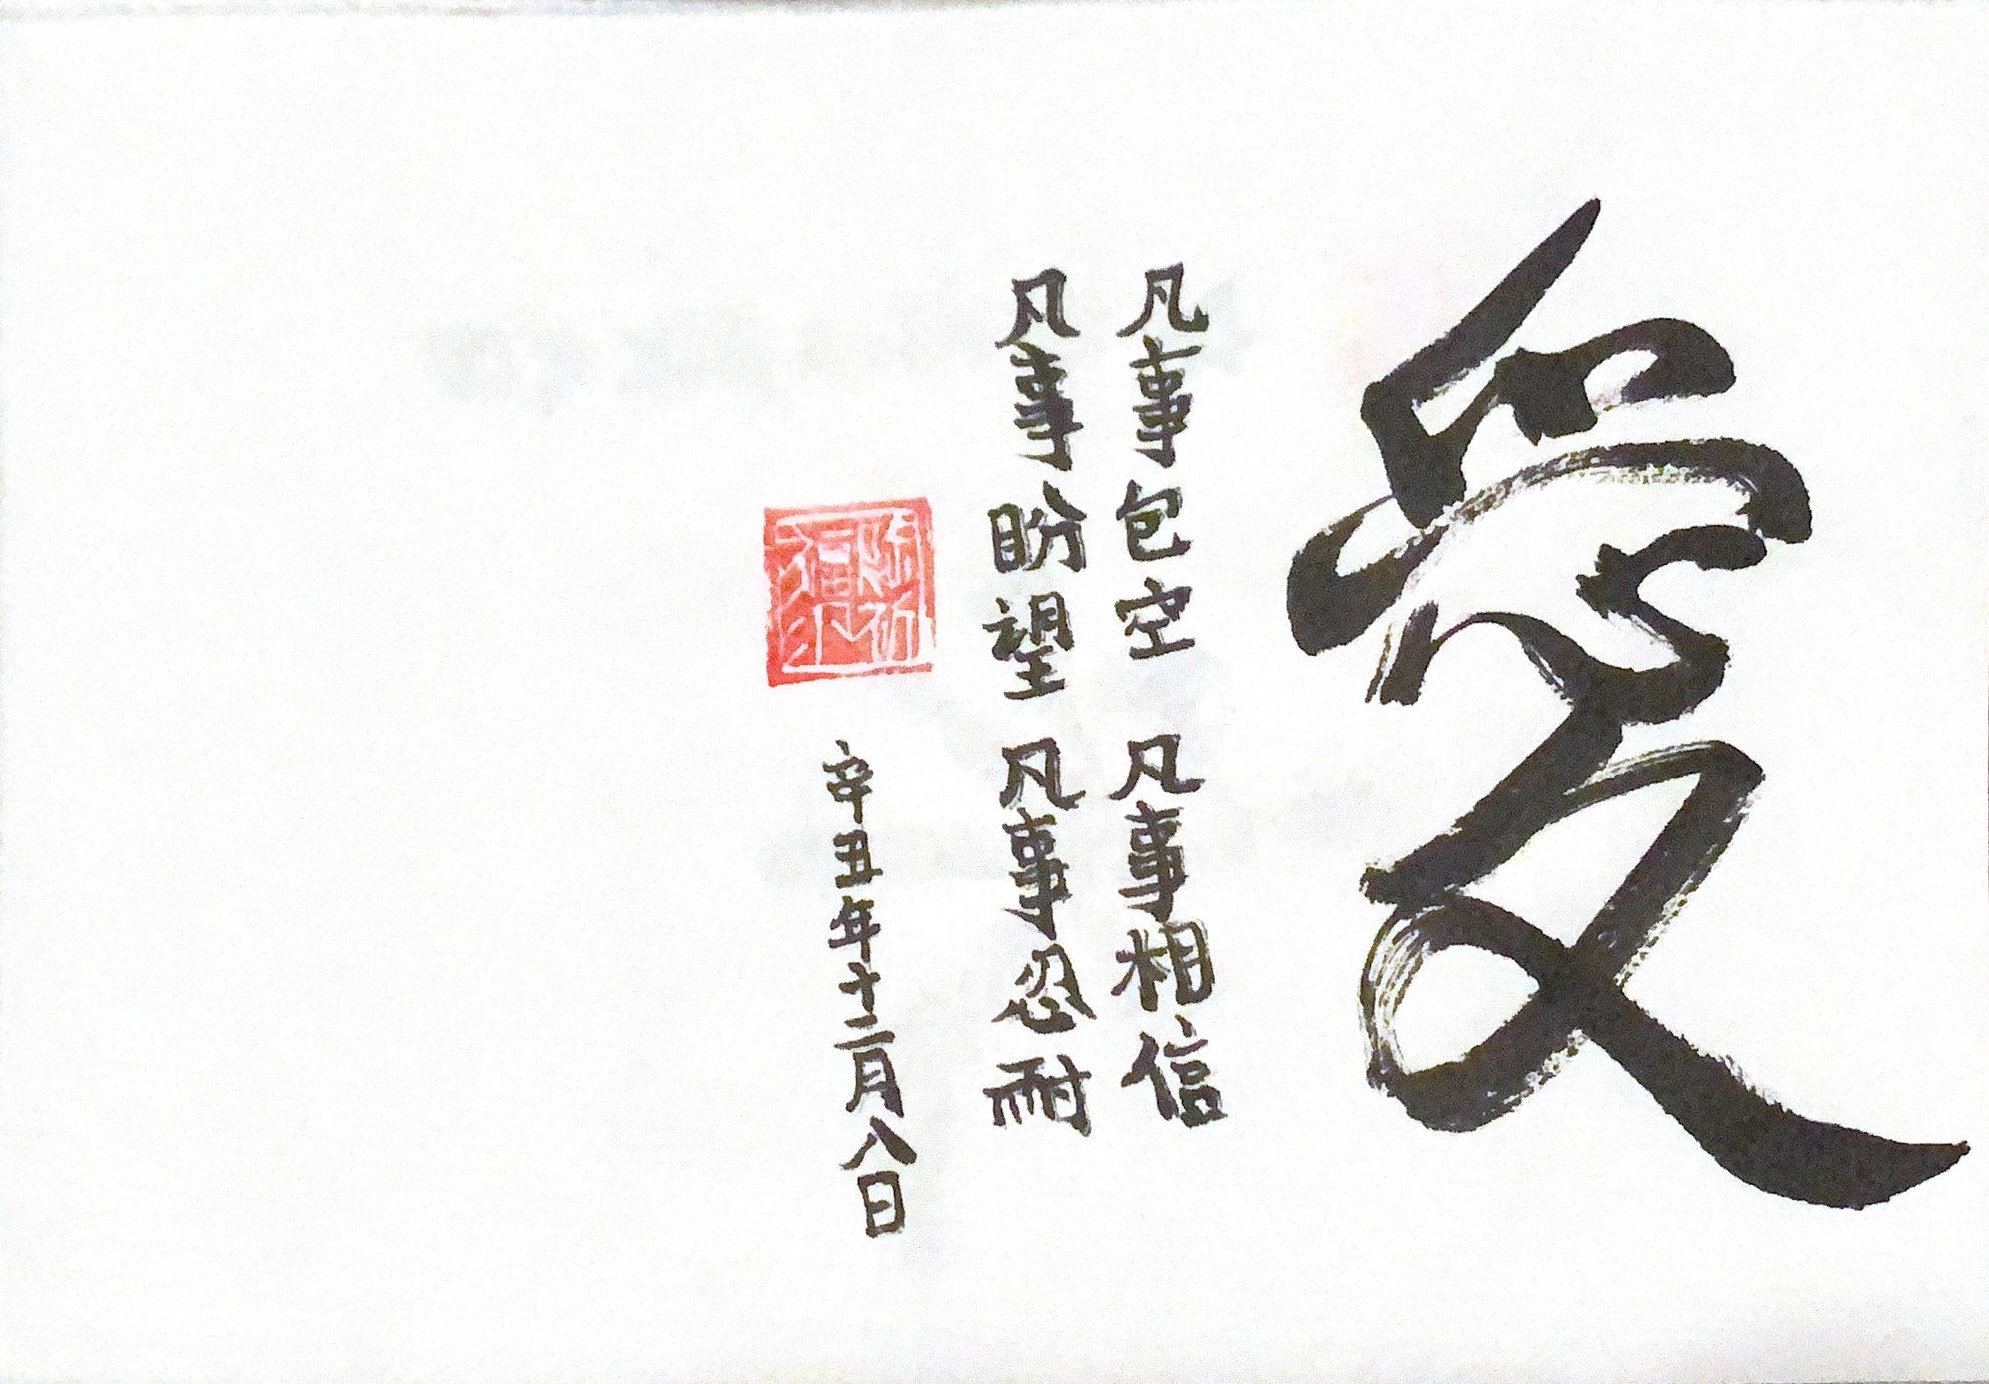 愛
凡事包容 凡事相信
凡事盼望 凡事忍耐
辛丑年十二月八日